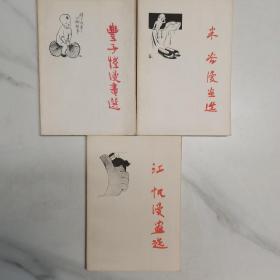 豐子愷漫畫選
米谷漫畫選
江帆漫畫選